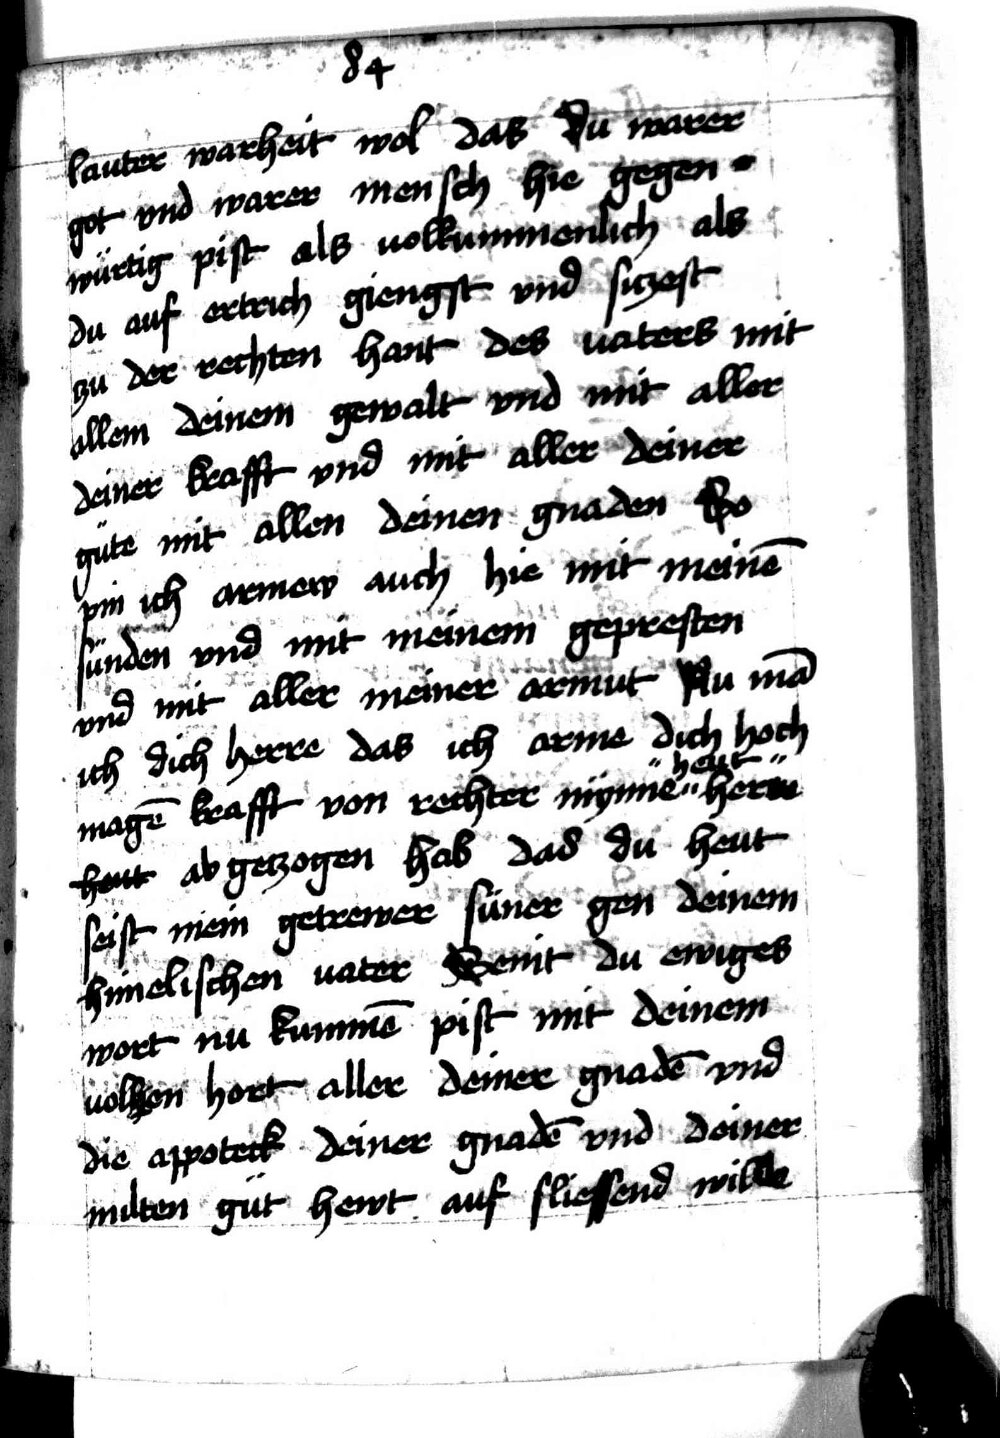 84
lauter warheit wol das Du warer
got vnd warer mensch hie gegen-
würtig pist als uolkummenlich als
du auf ertrich giengst vnd siczest
zu der rechten hant des uaters mit
allem deinem gewalt vnd mit aller
deiner krafft vnd mit aller deiner
güte mit allen deinen gnaden So
pin ich armew auch hie mit meinē
sünden vnd mit meinem gepresten
vnd mit aller meiner armut Nu mā
ich dich herre das ich arme dich hoch
magē krafft von rechter mynne heut her
heut ab geczogen hab das du heut
seist mein getrewer süner gen deinem
himelischen uater Seint du ewiges
wort nu kummē pist mit deinem
uollen hort aller deiner gnadē vnd
die appoteck deiner gnadē vnd deiner
milten güt hewt auf fliessend